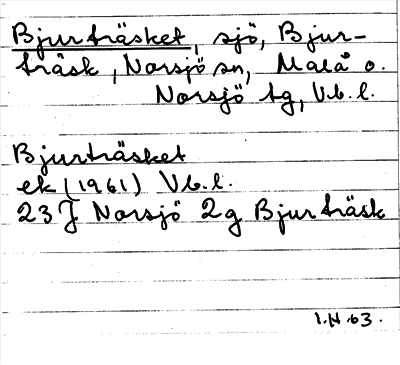 Bjurträsket, sjö, Bjur-
träsk, Norsjö sn, Malå o.
Norsjö tg, Vb. l.
Bjurträsket
ek (1961) Vb. l.
23 J Norsjö 2g Bjurträsk
1.H.63.